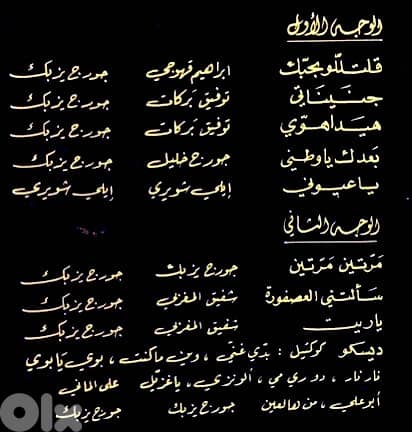 الوجه الأول
قلتللو بحبّك ابراهيم قهوجي جورج يزبك
جنيناتي توفيق بركات جورج يزبك
هيدا هوّي توفيق بركات جورج يزبك
بَعدك يا وطني جورج خليل جورج يزبك
يا عيوني إيلي شويري إيلي شويري
الوجه الثاني
مَرّتين مَرّتين جورج يزبك جورج يزبك
سَألتني العصفورة شفيق المغربي جورج يزبك
ياريت شفيق المغربي جورج يزبك
ديسكو كوكتيل : بدّي غنّي ، ومن ماكنت ، بوي يا بوي
نار نار ، دو ري مي ، ألونزي ، يا غزيّل على الماني
أبو علي ، من هالعين جورج يزبك جورج يزبك
OLX